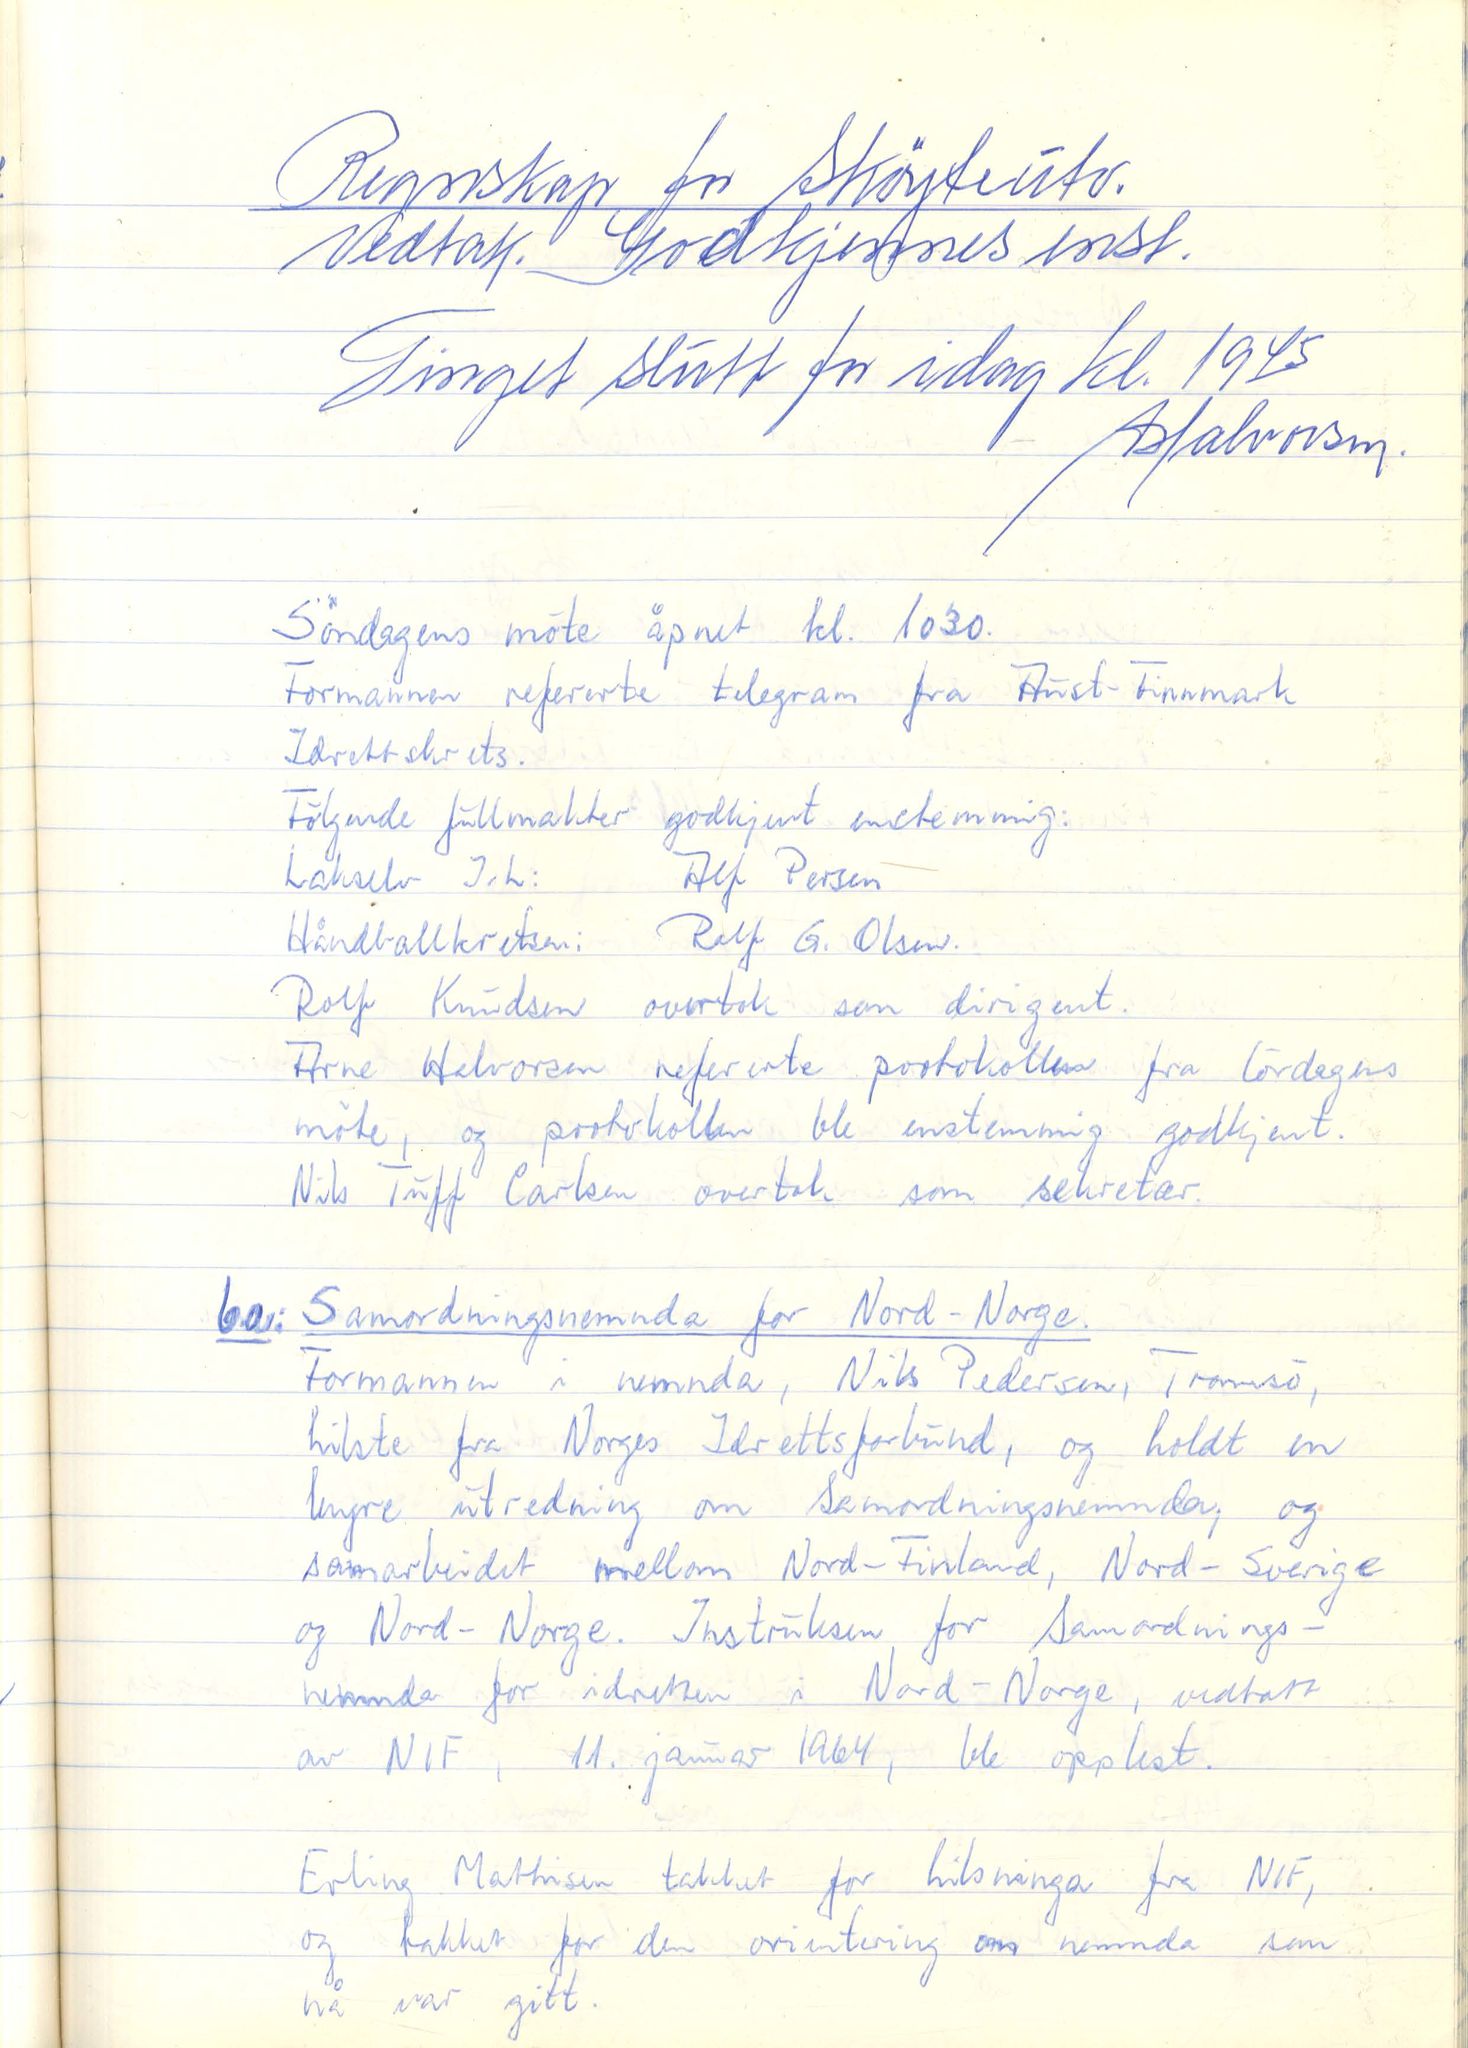 Regnskap for Sköyteutv.
Vedtak. Godkjennes enst.
Tinget slutt for idag kl. 1945
AHalvorsen.
Söndagens möte åpnet kl. 1030.
Formannen refererte telegram fra Aust-Finnmark
Idrettskrets.
Fölgende fullmakter godkjent enstemmig:
Lakselv I.L: Alf Persen
Håndballkretsen: Rolf G. Olsen.
Rolf Knudsen overtok som dirigent.
Arne Halvorsen refererte protokollen fra lördagens
möte, og protokollen ble enstemmig godkjent.
Nils Tuff Carlsen overtok som sekretær.
6a: Samordningsnemnda for Nord-Norge.
Formannen i nemnda, Nils Pedersen, Tromsö,
hilste fra Norges Idrettsforbund, og holdt en
lengre utredning om Samordningsnemnda, og
samarbeidet mellom Nord-Finland, Nord-Sverige
og Nord-Norge. Instruksen for Samordnings-
nemnda for idretten i Nord-Norge, vedtatt
av NIF, 11. januar 1964, ble opplest.
Erling Mathisen takket for hilsninga fra NIF,
og takket for den orientering om nemnda som
nå var gitt.